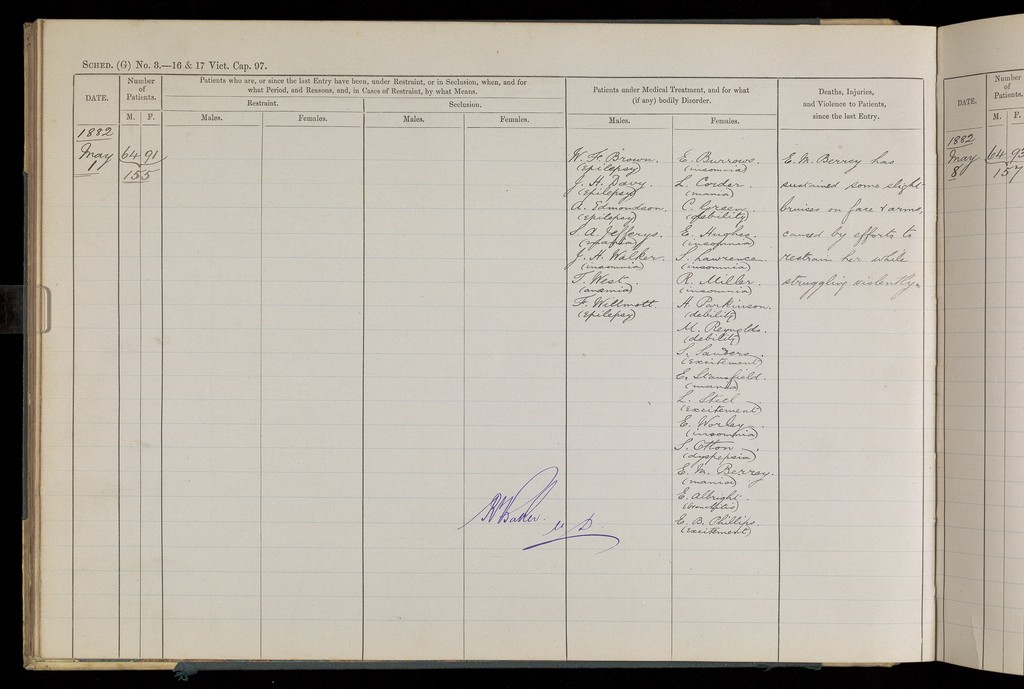 SCHED. (G) No. 3.—16 & 17 Vict. Cap. 97.
DATE.
Number of Patients.
M. F.
Patients who are, or since the last Entry have been, under Restraint, or in Seclusion, when, and for
what Period, and Reasons, and, in Cases of Restraint, by what Means.
Restraint.
Seclusion.
Males.
Females.
Males.
Females.
Patients under Medical Treatment, and for what
(if any) bodily Disorder.
Males.
Females.
Deaths, Injuries,
and Violence to Patients,
since the last Entry.
1882
May 64 91
1 155
W. F. Brown.
(Epilepsy)
J. H. Davy.
(Epilepsy)
A. Edmondson.
(Epilepsy)
S. A. Jefferys.
(mania)
J. H. Walker.
(insomnia)
T. West.
(anæmia)
F. Willmott.
(Epilepsy)
E. Burrows.
(insomnia)
L. Corder.
(mania)
C. Green.
(debility)
E. Hughes.
(insomnia)
S. Lawrence.
(insomnia)
R. Miller.
(insomnia)
H. Parkinson.
(debility)
M. Reynolds.
(debility)
S. Sanders.
(Excitement)
E. Stansfield.
(mania)
L. Steel
(excitement)
E. Worley
(insomnia)
S. Otton
(dyspepsia)
E. M. Berrey.
(mania)
E. Albright.
(bronchitis)
E. B. Phillips.
(Excitement)
E. M. Berrey has
sustained some slight
bruises on face & arms,
caused by efforts to
restrain her while
struggling violently.
R Baker. M D.
DATE.
Number of Patients.
M. F.
1882
May 64 93
8 157